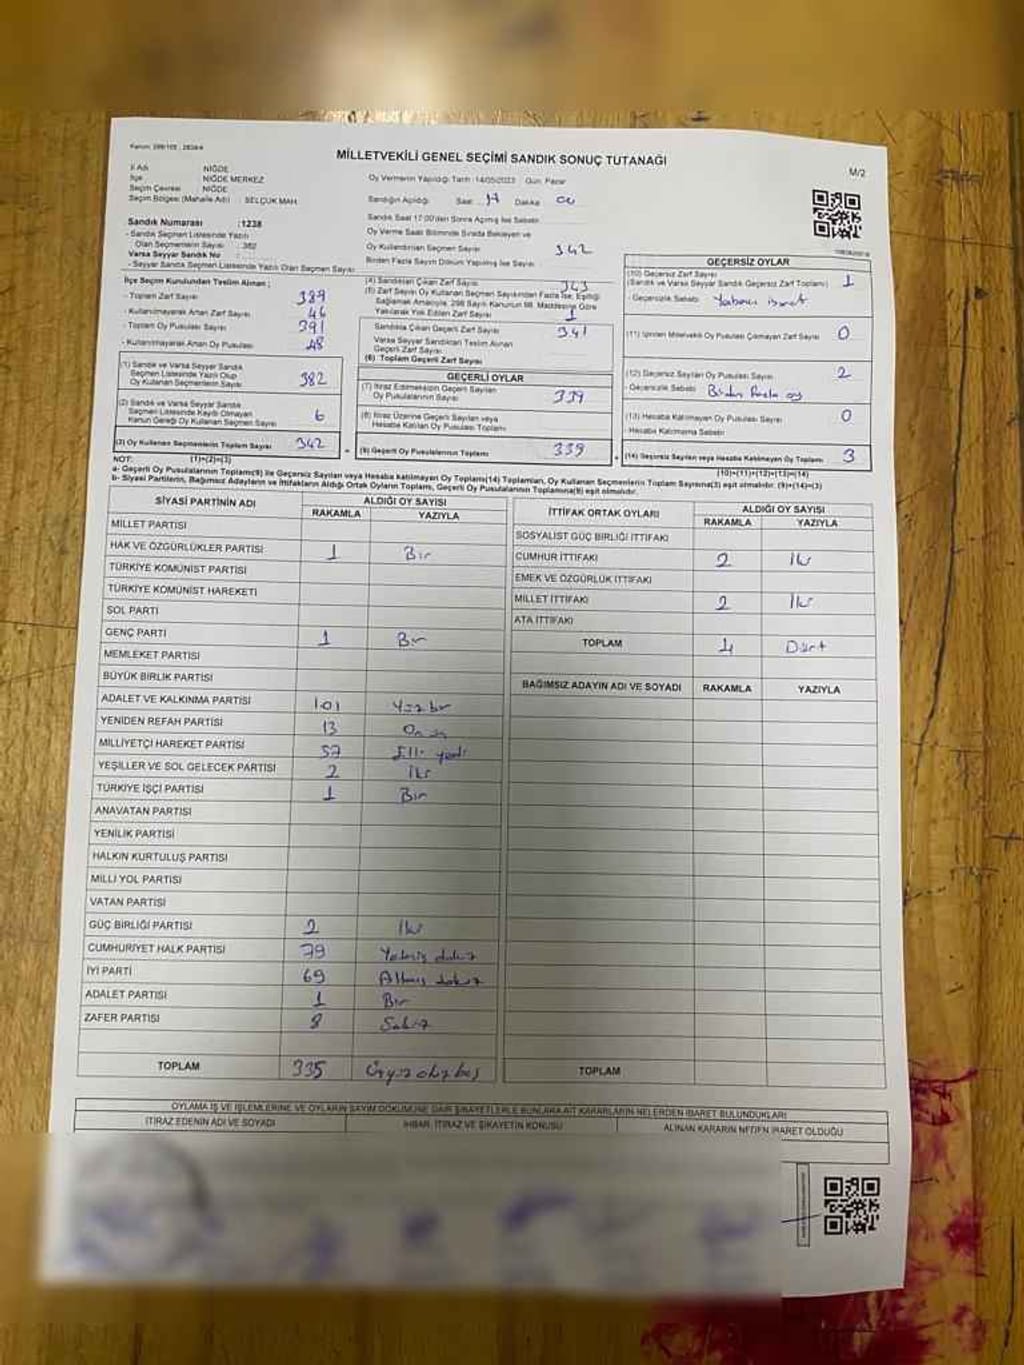 MİLLETVEKİLİ GENEL SEÇİMİ SANDIK SONUÇ TUTANAĞI
M/2
İl Adı NİĞDE
İlçe NİĞDE MERKEZ
Seçim Çevresi NİĞDE
Seçim Bölgesi (Mahalle Adı) : SELÇUK MAH.
Oy Vermenin Yapıldığı Tarih : 14/05/2023 Gün: Pazar
Sandığın Açıldığı Saat Dakika
Sandık Saat 17:00'den Sonra Açılmış İse Sebebi
Oy Verme Saati Bitiminde Sırada Bekleyen ve
Oy Kullandırılan Seçmen Sayısı 342
Birden Fazla Sayım Döküm Yapılmış İse Sayısı
Sandık Numarası :1238
- Sandık Seçmen Listesinde Yazılı
Olan Seçmenlerin Sayısı : 382
Varsa Seyyar Sandık No
- Seyyar Sandık Seçmen Listesinde Yazılı Olan Seçmen Sayısı
İlçe Seçim Kurulundan Teslim Alınan ;
- Toplam Zarf Sayısı 389
- Kullanılmayarak Artan Zarf Sayısı 46
- Toplam Oy Pusulası Sayısı 391
- Kullanılmayarak Artan Oy Pusulası 48
(1) Sandık ve Varsa Seyyar Sandık
Seçmen Listesinde Yazılı Olup
Oy Kullanan Seçmenlerin Sayısı 382
(2) Sandık ve Varsa Seyyar Sandık
Seçmen Listesinde Kaydı Olmayan
Kanun Gereği Oy Kullanan Seçmen Sayısı 6
(3) Oy Kullanan Seçmenlerin Toplam Sayısı 342
(4) Sandıktan Çıkan Zarf Sayısı 343
(5) Zarf Sayısı Oy Kullanan Seçmen Sayısından Fazla İse, Eşitliği
Sağlamak Amacıyla, 298 Sayılı Kanunun 98. Maddesine Göre
Yakılarak Yok Edilen Zarf Sayısı 1
Sandıkta Çıkan Geçerli Zarf Sayısı 341
Varsa Seyyar Sandıktan Teslim Alınan
Geçerli Zarf Sayısı
(6) Toplam Geçerli Zarf Sayısı
GEÇERLİ OYLAR
(7) İtiraz Edilmeksizin Geçerli Sayılan
Oy Pusulalarının Sayısı 339
(8) İtiraz Üzerine Geçerli Sayılan veya
Hesaba Katılan Oy Pusulası Toplamı
(9) Geçerli Oy Pusulalarının Toplamı 339
GEÇERSİZ OYLAR
(10) Geçersiz Zarf Sayısı
(Sandık ve Varsa Seyyar Sandık Geçersiz Zarf Toplamı) 1
- Geçersizlik Sebebi Yabancı işaret
(11) İçinden Milletvekili Oy Pusulası Çıkmayan Zarf Sayısı 0
(12) Geçersiz Sayılan Oy Pusulası Sayısı 2
- Geçersizlik Sebebi Birden fazla oy
(13) Hesaba Katılmayan Oy Pusulası Sayısı 0
- Hesaba Katılmama Sebebi
(14) Geçersiz Sayılan veya Hesaba Katılmayan Oy Toplamı 3
NOT: (1)+(2)=(3) (10)+(11)+(12)+(13)=(14)
a- Geçerli Oy Pusulalarının Toplamı(9) ile Geçersiz Sayılan veya Hesaba Katılmayan Oy Toplamı(14) Toplamları, Oy Kullanan Seçmenlerin Toplam Sayısına(3) eşit olmalıdır. (9)+(14)=(3)
b- Siyasi Partilerin, Bağımsız Adayların ve İttifakların Aldığı Ortak Oyların Toplamı, Geçerli Oy Pusulalarının Toplamına(9) eşit olmalıdır.
SİYASİ PARTİNİN ADI ALDIĞI OY SAYISI
RAKAMLA YAZIYLA
MİLLET PARTİSİ
HAK VE ÖZGÜRLÜKLER PARTİSİ 1 Bir
TÜRKİYE KOMÜNİST PARTİSİ
TÜRKİYE KOMÜNİST HAREKETİ
SOL PARTİ
GENÇ PARTİ 1 Bir
MEMLEKET PARTİSİ
BÜYÜK BİRLİK PARTİSİ
ADALET VE KALKINMA PARTİSİ 101 Yüzbir
YENİDEN REFAH PARTİSİ 13
MİLLİYETÇİ HAREKET PARTİSİ 57 Elli yedi
YEŞİLLER VE SOL GELECEK PARTİSİ 2 İki
TÜRKİYE İŞÇİ PARTİSİ 1 Bir
ANAVATAN PARTİSİ
YENİLİK PARTİSİ
HALKIN KURTULUŞ PARTİSİ
MİLLİ YOL PARTİSİ
VATAN PARTİSİ
GÜÇ BİRLİĞİ PARTİSİ 2 İki
CUMHURİYET HALK PARTİSİ 79 Yetmiş dokuz
İYİ PARTİ 69 Altmış dokuz
ADALET PARTİSİ 1 Bir
ZAFER PARTİSİ 8 Sekiz
TOPLAM 335 Üçyüz otuz beş
İTTİFAK ORTAK OYLARI ALDIĞI OY SAYISI
RAKAMLA YAZIYLA
SOSYALİST GÜÇ BİRLİĞİ İTTİFAKI
CUMHUR İTTİFAKI 2 İki
EMEK VE ÖZGÜRLÜK İTTİFAKI
MİLLET İTTİFAKI 2 İki
ATA İTTİFAKI
TOPLAM 4 Dört
BAĞIMSIZ ADAYIN ADI VE SOYADI RAKAMLA YAZIYLA
TOPLAM
OYLAMA İŞ VE İŞLEMLERİNE VE OYLARIN SAYIM DÖKÜMÜNE DAİR ŞİKAYETLERLE BUNLARA AİT KARARLARIN NELERDEN İBARET BULUNDUKLARI
İTİRAZ EDENİN ADI VE SOYADI İHBAR, İTİRAZ VE ŞİKAYETİN KONUSU ALINAN KARARIN NEDEN İBARET OLDUĞU